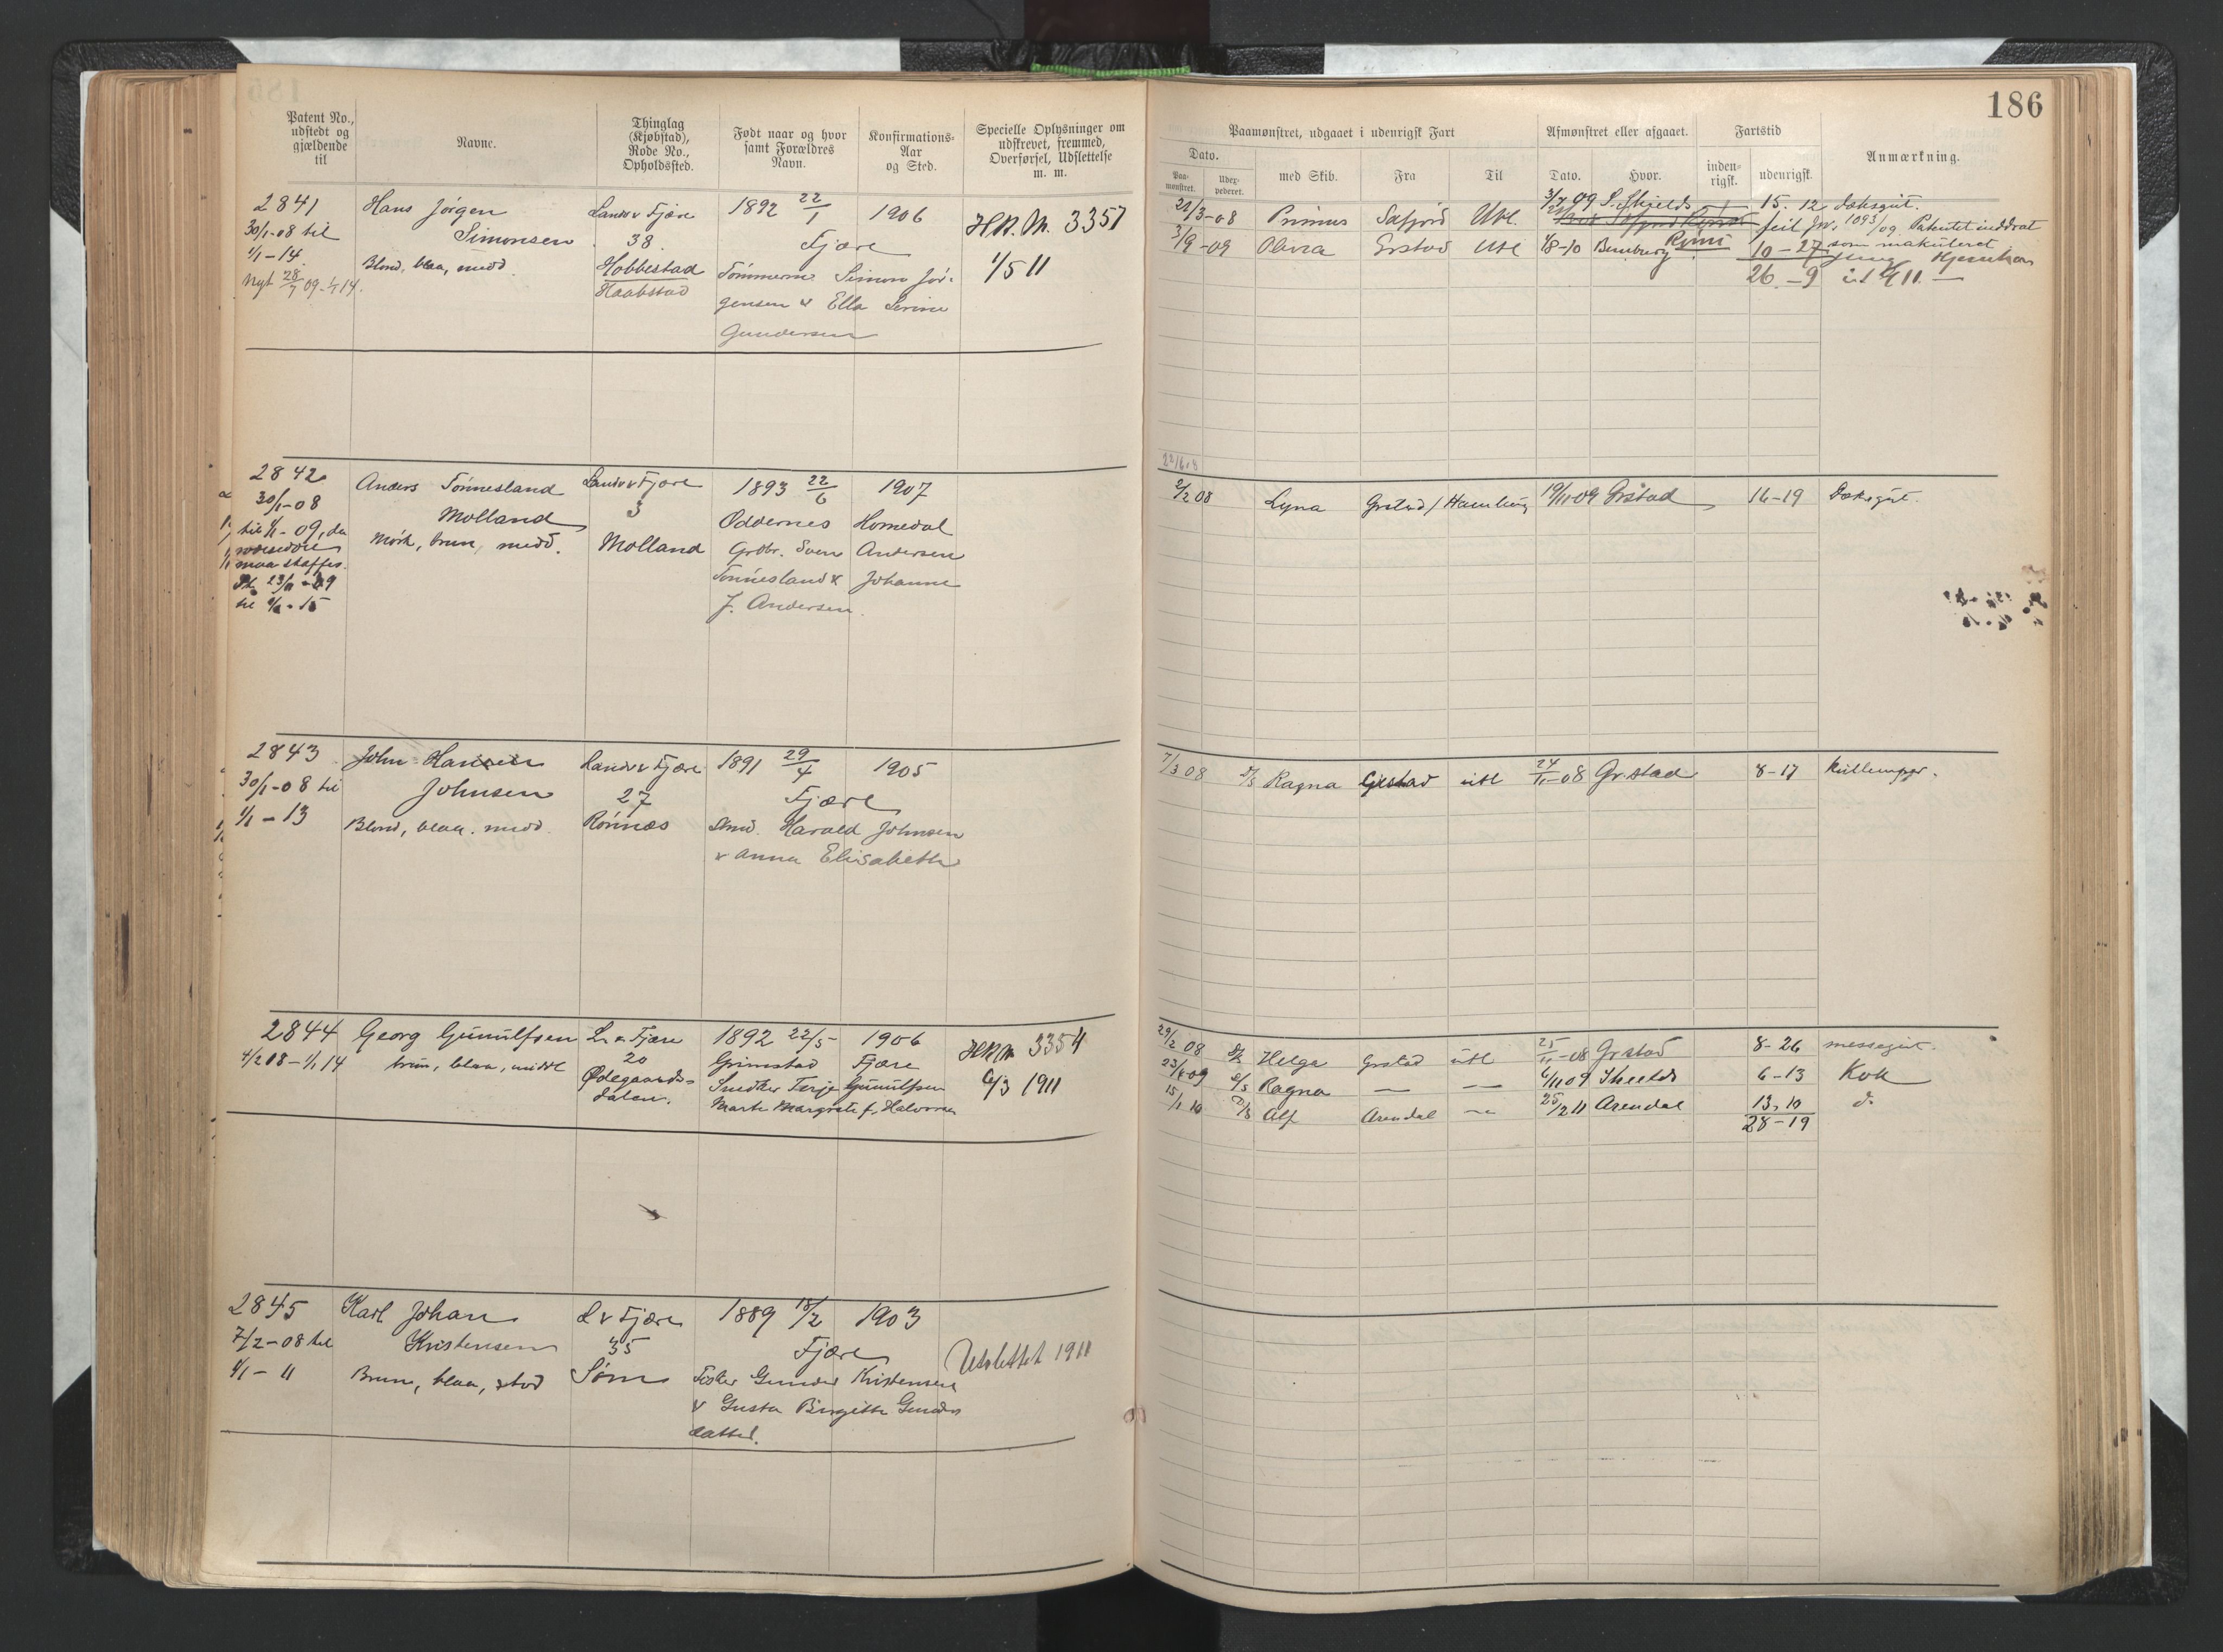 186
Patent No., udstedt og gjældende til
Navne.
Thinglag (Kjøbstad), Rode No., Opholdssted.
Født naar og hvor samt Forældres Navn.
Konfirmations-Aar og Sted.
Specielle Oplysninger om udskrevet, fremmed, Overførsel, Udslettelse m. m.
Paamønstret, udgaaet i udenrigsk Fart
Afmønstret eller afgaaet.
Fartstid
Anmærkning.
Dato.
Paa-mønstret.
Udex-pederet.
med Skib.
Fra
Til
Dato.
Hvor.
inden-rigsk.
udenrigsk.
2841 Hans Jørgen Landv Fjære 1892 22/1 1906 3357
30/1-08 til Simonsen 38. Fjære
1/1-14. Blond, blaa, midd. Hobbestad Tømmerm. Simon Jør- 1/5 11
Nyt 28/7 09-1/1 14. Haabstad gensen & Ella Serine
Gundersen
21/3-08 Primus Utl. 3/7 09 S. Shields 15. 12 Dæksgut.
3/9-09 Olivia Grstad Utl 10-27
26.-9
2842 Anders Tønnesland Landv Fjære 1893 22/6 1907
30/1-08 Molland 3 Oddernes Homedal
til 1/1-09, da Mørk, brun, midd. Molland Grdbr. Sven Andersen
maa skaffes. Tønnesland & Johanne
J. Andersen.
2/2 08 Lyna Grstad / Hamburg 19/11-09 Grstad 16-19 Dæksgut.
2843 John Hansen Landv Fjære 1891 29/4 1905
30/1-08 til Johnsen 27 Fjære
1/1-13 Blond, blaa, midd. Rønnes Harald Johnsen
& Anna Elisabeth
7/3 08 D/S Ragna Grstad utl 24/11-08 Grstad 8-17 Kullemper.
2844 Georg Gunulfsen L. v Fjære 1892 22/5 1906 3354
4/2 08-1/1 14 brun, blaa, middl 20 Grimstad Fjære
Ødegaards- Snedker Terje Gunulfsen 6/3 1911
dalen. Marte Margrete f. Halvorsen
29/2 08 D/S Helga Grstad utl 25/11-08 Grstad 8-26 messegut.
23/4 09 D/S Ragna — — 6/11 09 Shields 6-13 Kok
15/1 10 D/S Alf Arendal — 25/2 11 Arendal 13. 10 do
28-19
2845 Karl Johan L v Fjære 1889 18/2 1903
7/2-08 til Kristensen 35 Fjære Udslettet 1911
1/1-11 Brun, blaa, stod Søm Fisker Gunder Kristensen
& Gusta Birgitte Gunders
datter.